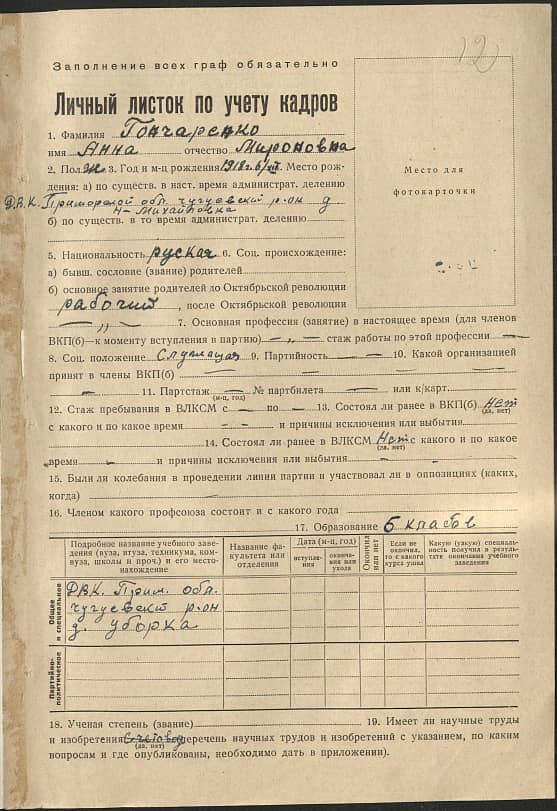 12
Заполнение всех граф обязательно
Личный листок по учету кадров
1. Фамилия Гончаренко
имя Анна отчество Мироновна
2. Пол ж 3. Год и м-ц рождения 1918 г. 6/VII. Место рож-
дения: а) по существ. в наст. время администрат. делению
Д.В.К. Приморской обл. чугуевский р-он д.
Н-Михайловка
б) по существ. в то время администрат. делению
5. Национальность руская 6. Соц. происхождение:
а) бывш. сословие (звание) родителей
б) основное занятие родителей до Октябрьской революции
рабочий, после Октябрьской революции
— „ — 7. Основная профессия (занятие) в настоящее время (для членов
ВКП(б) — к моменту вступления в партию) — „ — стаж работы по этой профессии —
8. Соц. положение Служащая 9. Партийность — 10. Какой организацией
принят в члены ВКП(б) —
— 11. Партстаж — № партбилета — или к/карт.
(м-ц, год)
12. Стаж пребывания в ВЛКСМ с — по — 13. Состоял ли ранее в ВКП(б) Нет
(да, нет)
с какого и по какое время — — и причины исключения или выбытия
14. Состоял ли ранее в ВЛКСМ Нет с какого и по какое
(да, нет)
время — и причины исключения или выбытия —
15. Были ли колебания в проведении линии партии и участвовал ли в оппозициях (каких,
когда) —
16. Членом какого профсоюза состоит и с какого года
17. Образование 5 класов
Подробное название учебного заве-
дения (вуза, втуза, техникума, ком-
вуза, школы и проч.) и его место-
нахождение
Название фа-
культета или
отделения
Дата (м-ц, год)
вступле-
ния
оконча-
ния или
ухода
Окончил
или нет
Если не
окончил,
то с какого
курса ушел
Какую (узкую) специаль-
ность получил в резуль-
тате окончания учебного
заведения
Общее
и специальное
ДВК. Прим. обл.
чугуевский р-он
д. уборка
Партийно-
политическое
18. Ученая степень (звание) 19. Имеет ли научные труды
и изобретения Счетовод (перечень научных трудов и изобретений с указанием, по каким
(да, нет)
вопросам и где опубликованы, необходимо дать в приложении).
Место для
фотокарточки